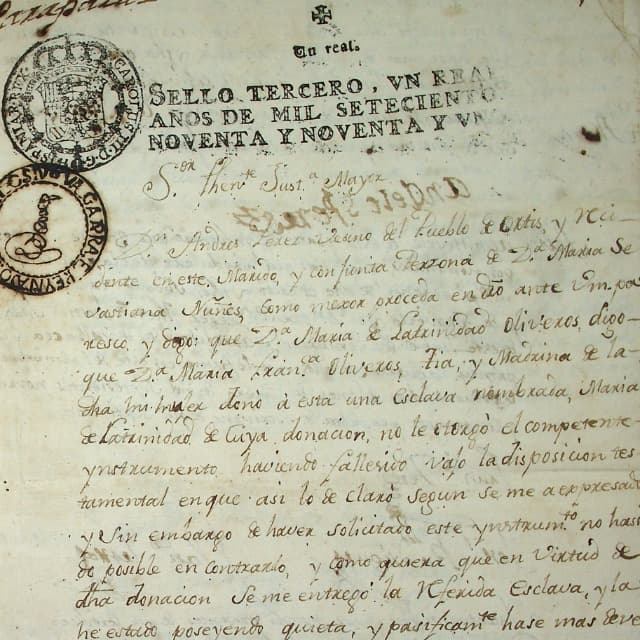 Un real.
SELLO TERCERO, VN REAL
AÑOS DE MIL SETECIENTOS
NOVENTA Y NOVENTA Y VN
CAROLUS III D G HISPANIAR REX
S.or Then.te Just.a Mayor
Dn. Andres Perez Vesino del Pueblo de Ortis, y Reci-
dente en este, Marido, y conjunta Perzona de D.a Maria Se
vastiana Nuñes, como mexor proceda en dro ante Vm. pa
resco, y digo: que D.a Maria de Latrinidad Oliveros, digo-
que D.a Maria Fran.ca Oliveros, tia, y Madrina de la-
dha mi muler donó à esta una Esclava nombrada, Maria
de Latrinidad, de Cuya donacion, no le otorgó el competente-
ynstrumento haviendo fallesido vajo la disposicion tes-
tamental en que asi lo de claró segun se me a expresado
y Sin embargo de haver solicitado este ynstrum.to no hasi
do posible en contrarlo, y como quiera que en virtud de
dha donacion Se me entregó la Referida Esclava, y la
he estado poseyendo quieta, y pasificam.te hase mas de